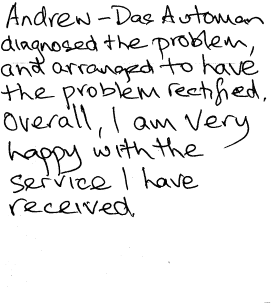 Andrew - Das Automan
diagnosed the problem,
and arranged to have
the problem rectified.
Overall, I am very
happy with the
service I have
received.